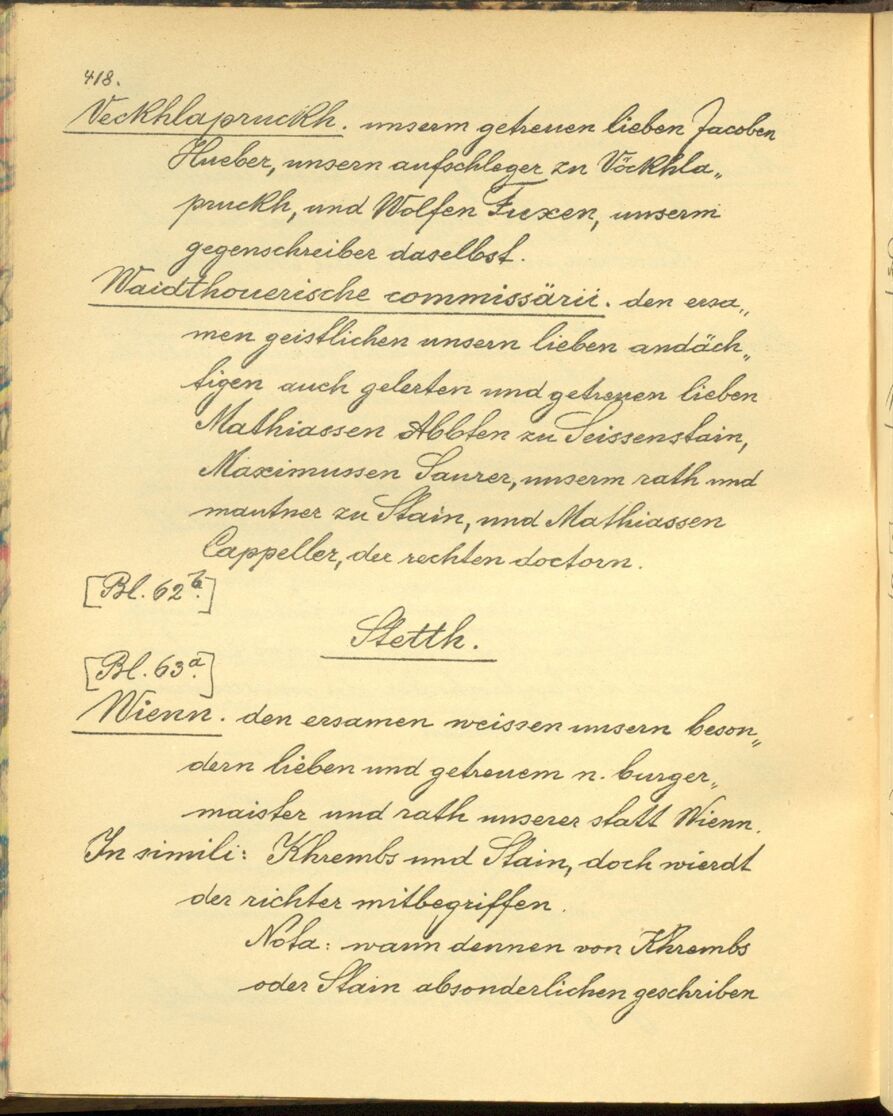 418.
Veckhlapruckh. unserm getreuen lieben Jacoben
Hueber, unsern aufschleger zu Vöckhla„
pruckh, und Wolfen Fuxen, unserm
gegenschreiber daselbst.
Waidthouerische commissärii. den ersa„
men geistlichen unsern lieben andäch„
tigen auch gelerten und getreuen lieben
Mathiassen Abbten zu Seissenstain,
Maximussen Saurer, unserm rath und
mautner zu Stain, und Mathiassen
Cappeller, der rechten doctorn.
[Bl. 62b.]
Stetth.
[Bl. 63a.]
Wienn. den ersamen weissen unsern beson„
dern lieben und getreuem n. burger„
maister und rath unserer statt Wienn.
In simili: Khrembs und Stain, doch wierdt
der richter mitbegriffen.
Nota: wann dennen von Khrembs
oder Stain absonderlichen geschriben